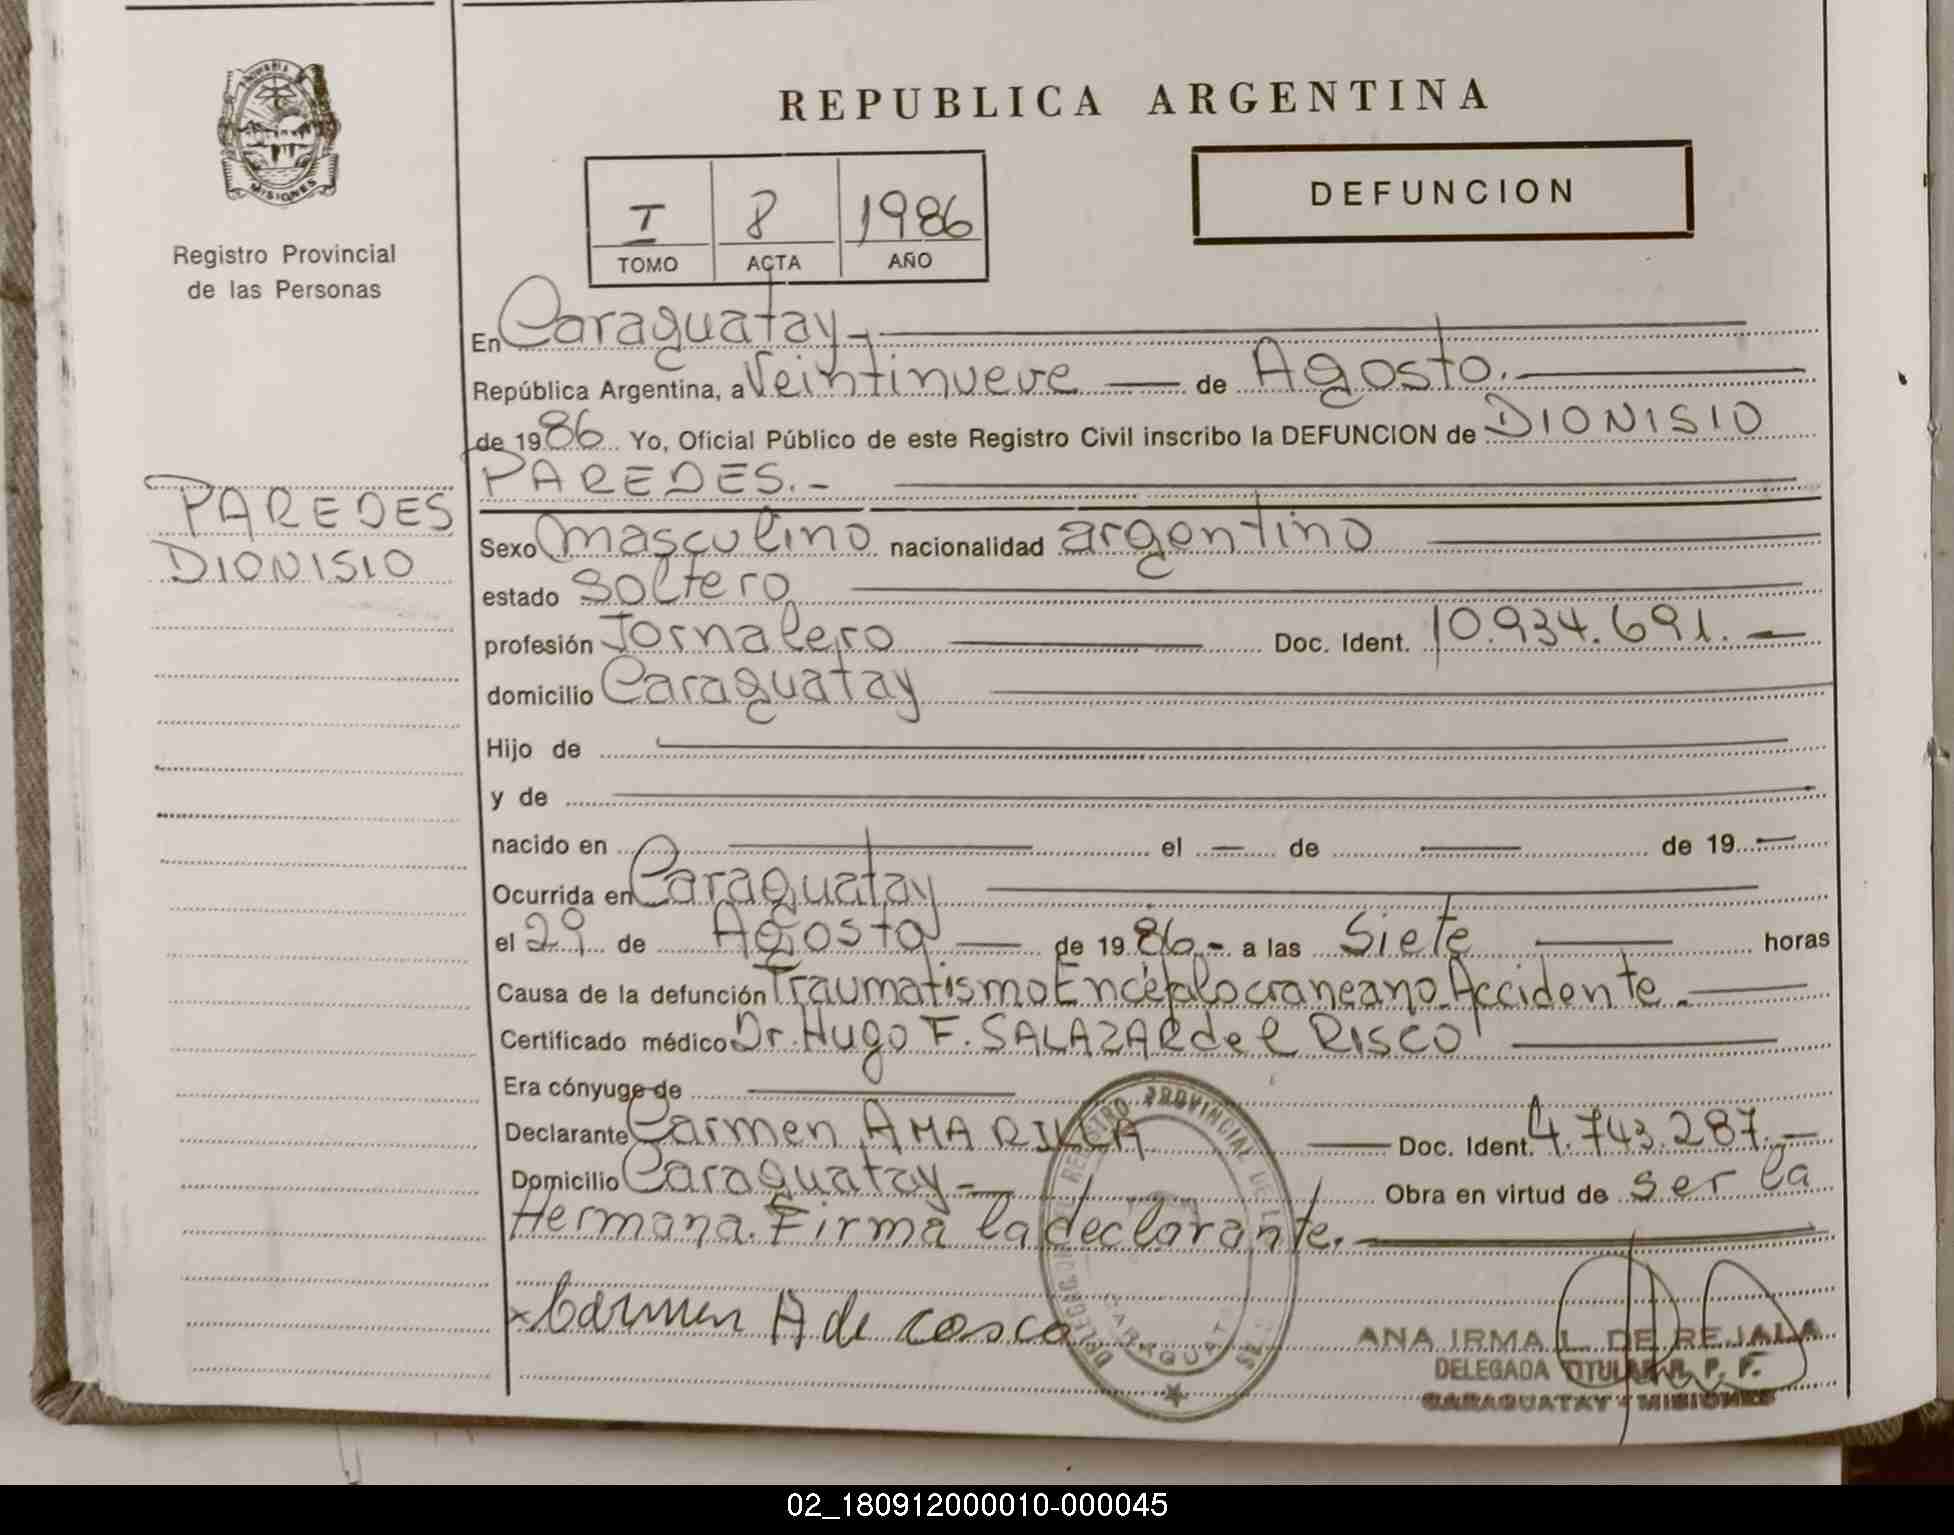 REPUBLICA ARGENTINA
PROVINCIA
MISIONES
Registro Provincial
de las Personas
I 8 1986
TOMO ACTA AÑO
DEFUNCION
En Caraguatay.-
República Argentina, a Veintinueve de Agosto.
de 1986. Yo, Oficial Público de este Registro Civil inscribo la DEFUNCION de DIONISIO
PAREDES.-
PAREDES
DIONISIO
Sexo masculino nacionalidad argentino
estado soltero
profesión Jornalero Doc. Ident. 10.934.691.-
domicilio Caraguatay
Hijo de
y de
nacido en el de de 19
Ocurrida en Caraguatay
el 29 de Agosto de 1986.- a las Siete horas
Causa de la defunción Traumatismo Encéfalocraneano. Accidente.
Certificado médico Dr. Hugo F. SALAZAR del RISCO
Era cónyuge de
Declarante Carmen AMARILLA Doc. Ident. 4.743.287.-
Domicilio Caraguatay.- Obra en virtud de ser la
Hermana. Firma la declarante.
x Carmen A de cosco
REGISTRO PROVINCIAL DE L
ANA IRMA L. DE REJALA
DELEGADA TITULAR R. P. F.
CARAGUATAY - MISIONES
02_180912000010-000045